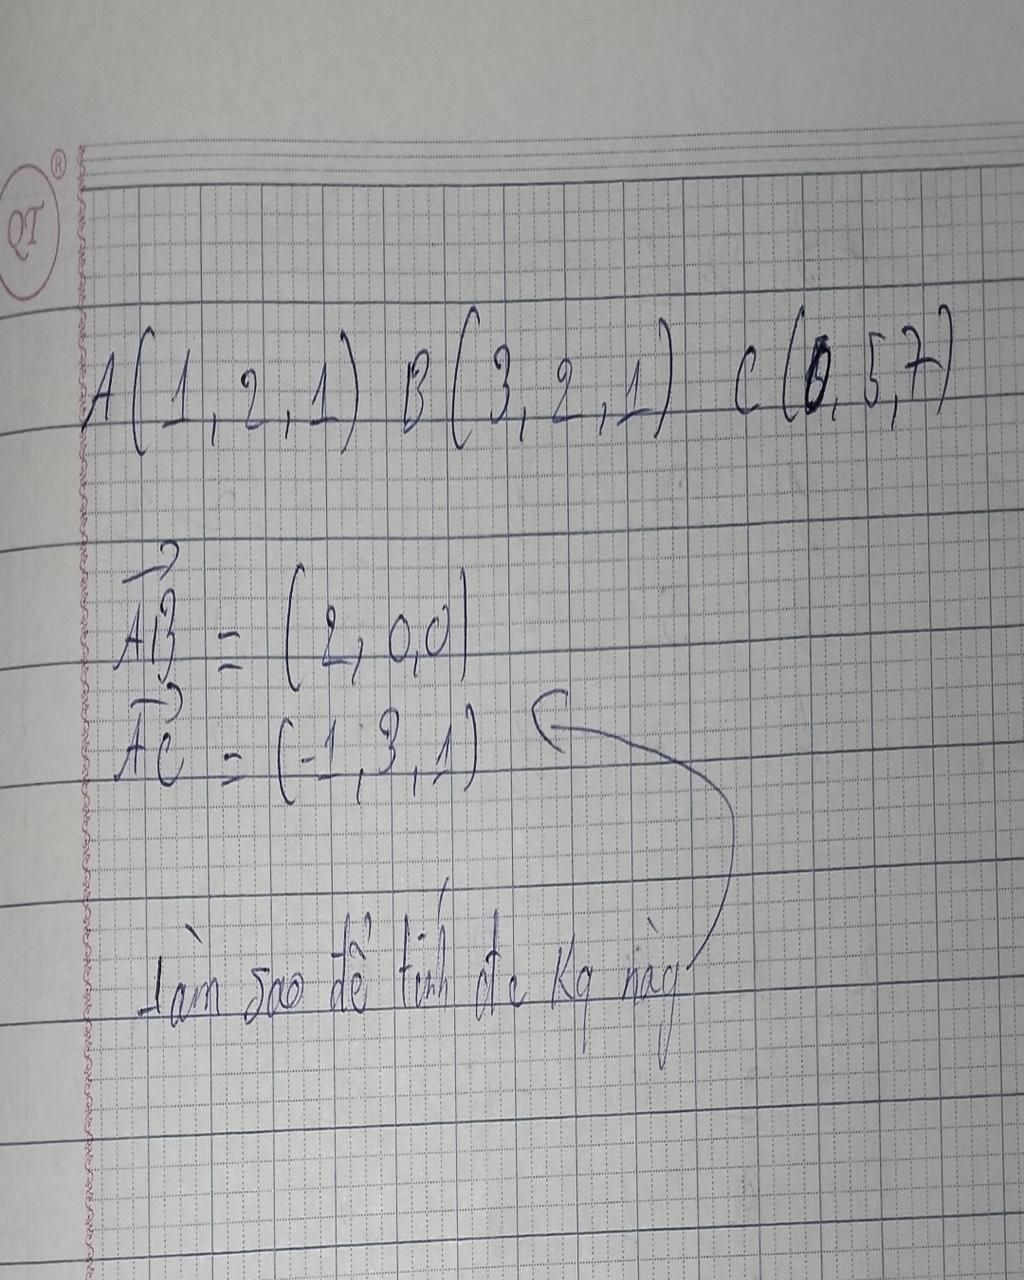 QT ®
A(1, 2, 1) B(3, 2, 1) C(0, 5, 7)
AB = (2, 0, 0)
AC = (-1, 3, 1)
làm sao để tính đc Kq này